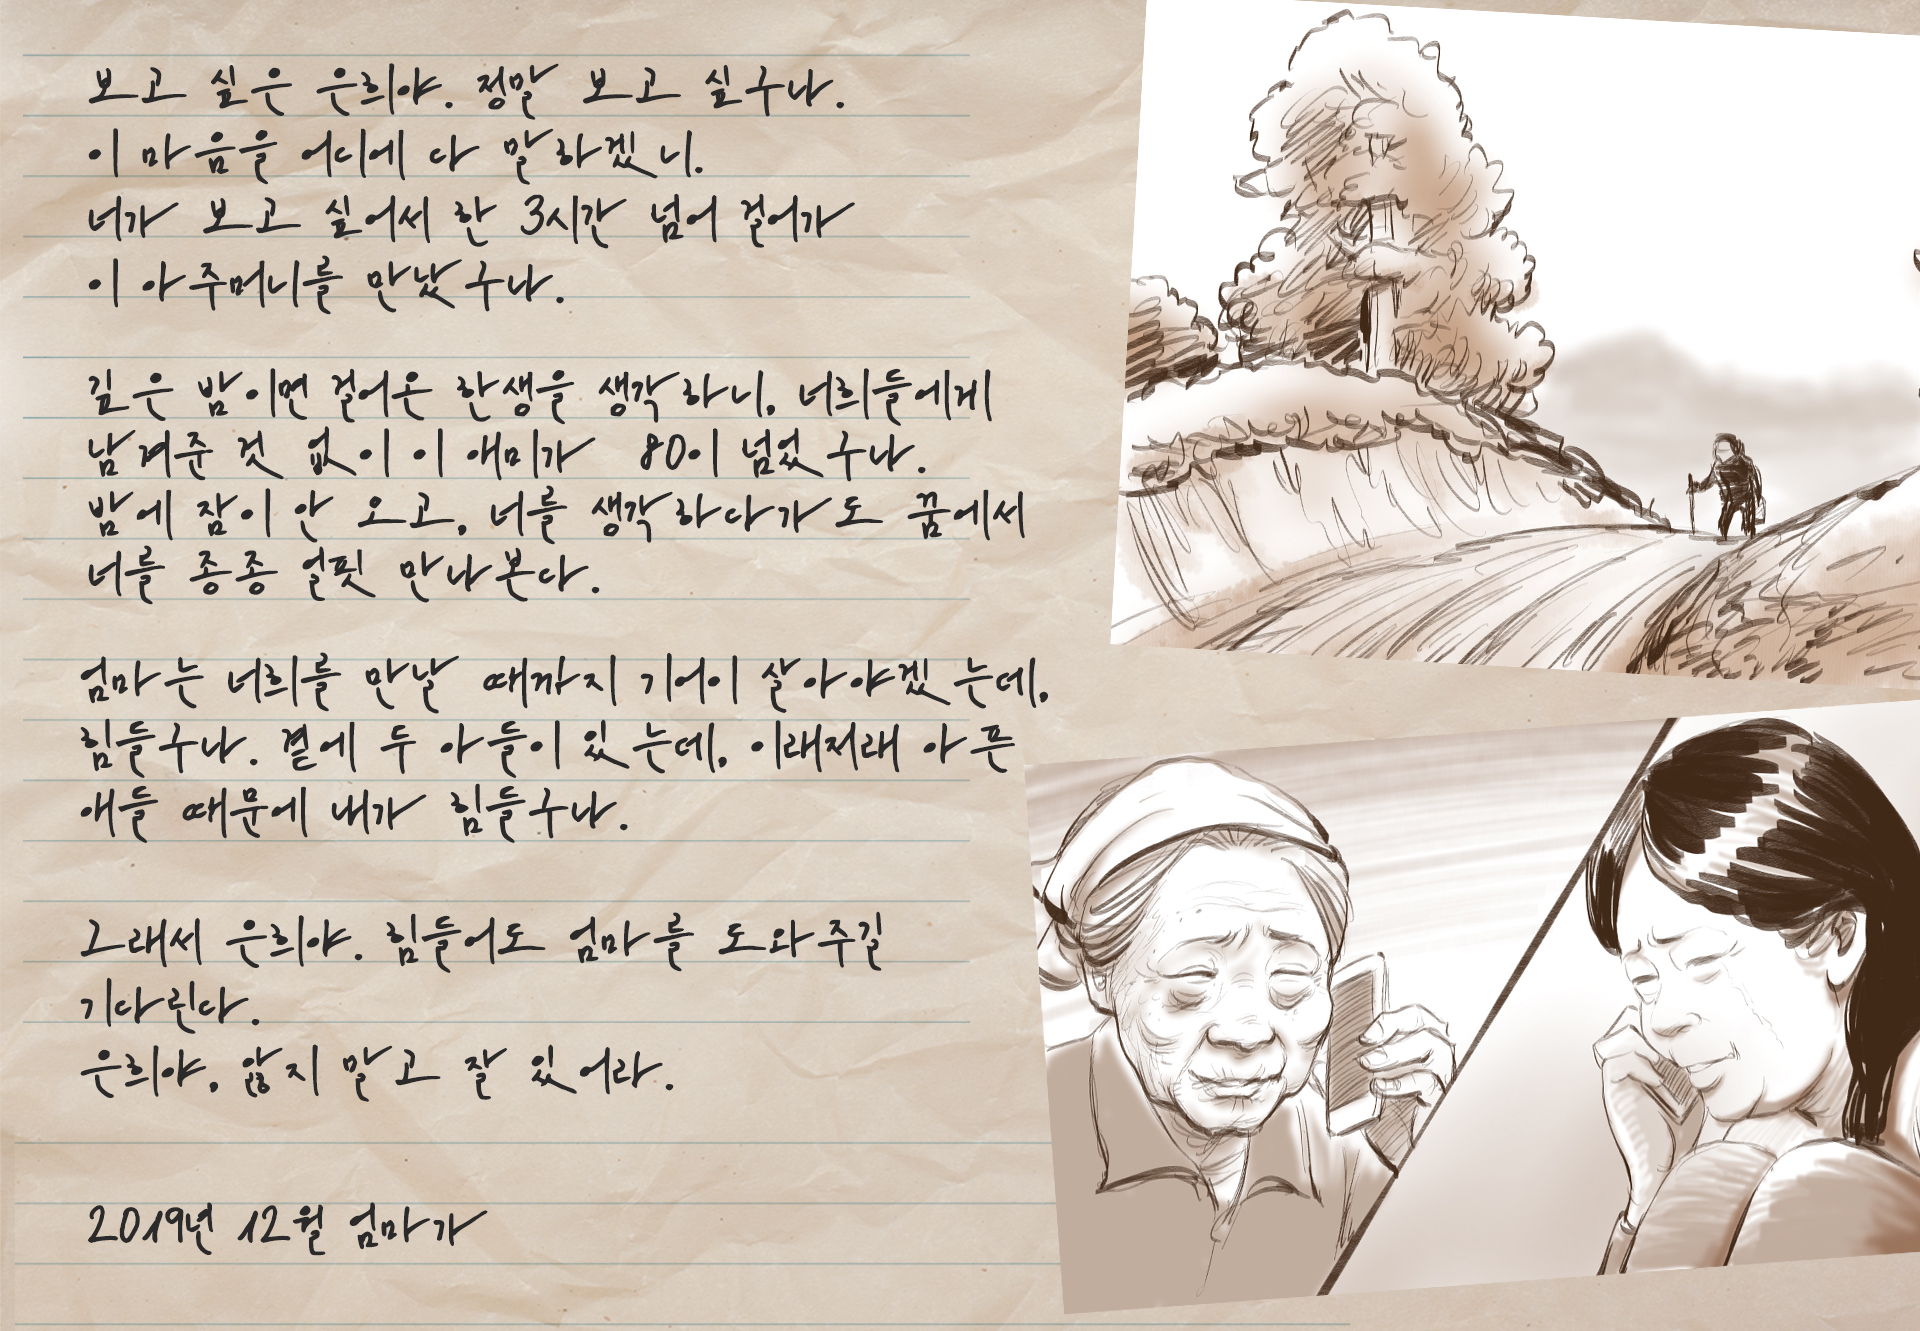 보고 싶은 은희야. 정말 보고 싶구나.
이 마음을 어디에 다 말하겠니.
너가 보고 싶어서 한 3시간 넘어 걸어가
이 아주머니를 만났구나.
깊은 밤이면 걸어온 한생을 생각하니, 너희들에게
남겨준 것 없이 이 애미가 80이 넘었구나.
밤에 잠이 안 오고, 너를 생각하다가도 꿈에서
너를 종종 얼핏 만나본다.
엄마는 너희를 만날 때까지 기어이 살아야겠는데,
힘들구나. 곁에 두 아들이 있는데, 이래저래 아픈
애들 때문에 내가 힘들구나.
그래서 은희야. 힘들어도 엄마를 도와주길
기다린다.
은희야, 앓지 말고 잘 있어라.
2019년 12월 엄마가